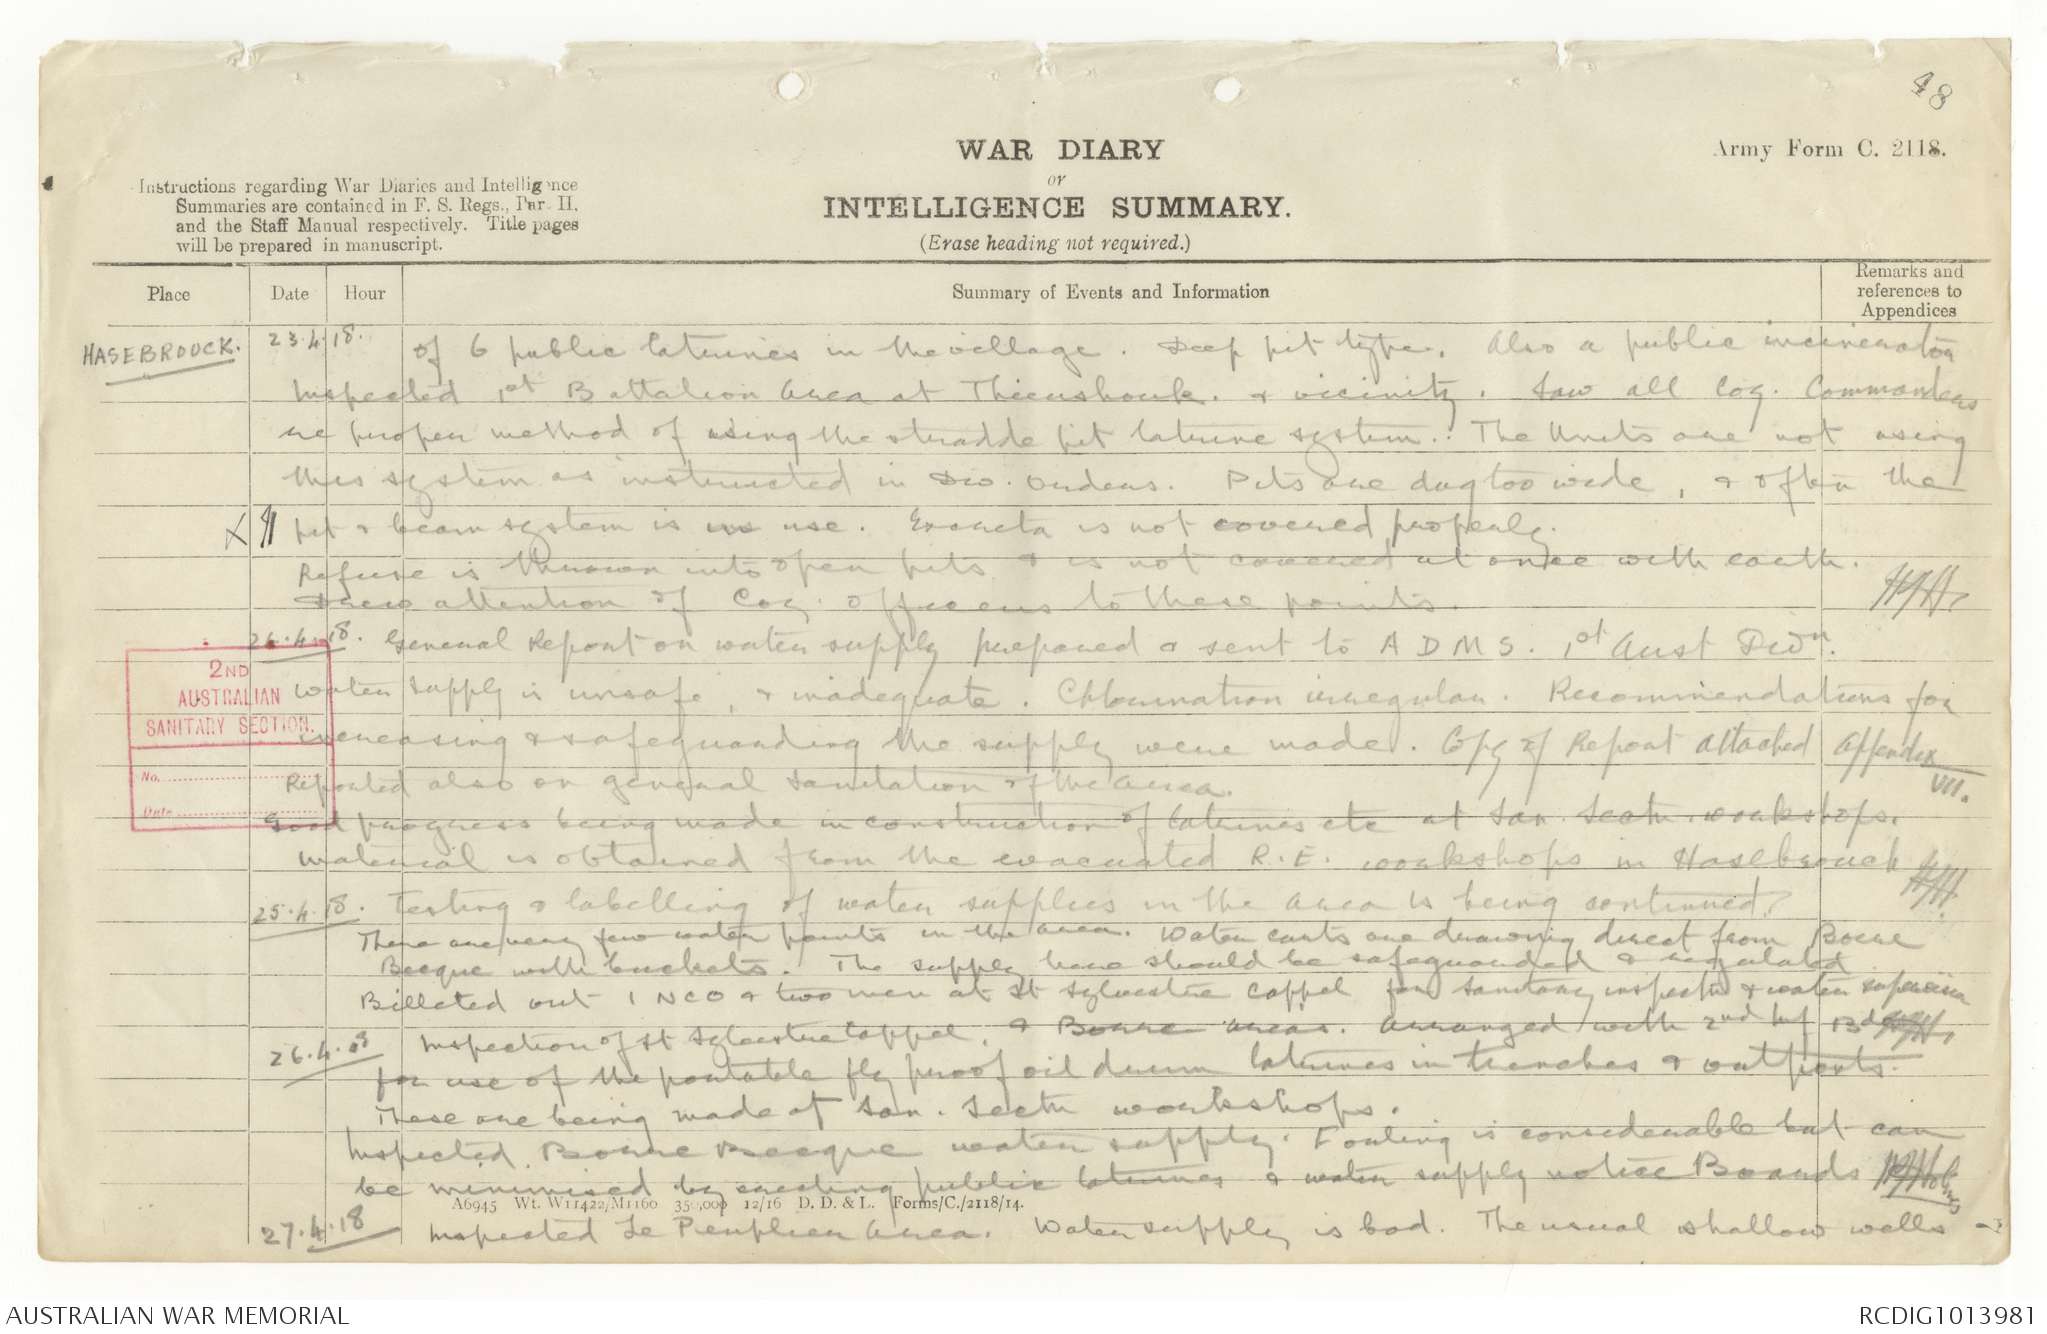 48
WAR DIARY
or
INTELLIGENCE SUMMARY.
(Erase heading not required.)
Army Form C. 2118.
Instructions regarding War Diaries and Intelligence
Summaries are contained in F. S. Regs., Par. II.
and the Staff Manual respectively. Title pages
will be prepared in manuscript.
Place
Date
Hour
Summary of Events and Information
Remarks and
references to
Appendices
HASEBROUCK. 23.4.18. of 6 public latrines in the village. Deep pit type. Also a public incinerator
Inspected 1st Battalion area at Thieushouk. & vicinity. Saw all Coy. Commanders
re proper method of using the straddle pit latrine system. The Units are not using
this system as instructed in Div. Orders. Pits are dug too wide, & often the
X pit & beam system is in use. Excreta is not covered properly.
Refuse is thrown into open pits & is not covered at once with earth.
Drew attention of Coy. officers to these points. HH
24.4.18. General Report on water supply prepared & sent to A D M S. 1st Aust Divn.
Water supply is unsafe, & inadequate. Chlorination irregular. Recommendations for
increasing & safeguarding the supply were made. Copy of Report attached Appendix
VII.
Reported also on general sanitation of the area.
Good progress being made in construction of latrines etc at San. Sectn. workshops.
Material is obtained from the evacuated R.E. workshops in Hasebrouck
25.4.18. Testing & labelling of water supplies in the area is being continued.
There are very few water points in the area. Water carts are drawing direct from Borre
Becque with buckets. The supply here should be safeguarded & regulated
Billeted out 1 NCO & two men at St Sylvestre Cappel for sanitary inspectn & water supervision
26.4.18 Inspection of St Sylvestre Cappel, & Borre areas. Arranged with 2nd Inf Bde
for use of the portable fly proof oil drum latrines in trenches & outposts.
These are being made at San. Sectn workshops.
Inspected Borre Becque water supply. Fouling is considerable but can
be minimised by erecting public latrines & water supply notice Boards
27.4.18 Inspected Le Peuplier area. Water supply is bad. The usual shallow wells
2ND
AUSTRALIAN
SANITARY SECTION.
No.
Date
A6945 Wt. W11422/M1160 350,000 12/16 D. D. & L. Forms/C./2118/14.
AUSTRALIAN WAR MEMORIAL
RCDIG1013981